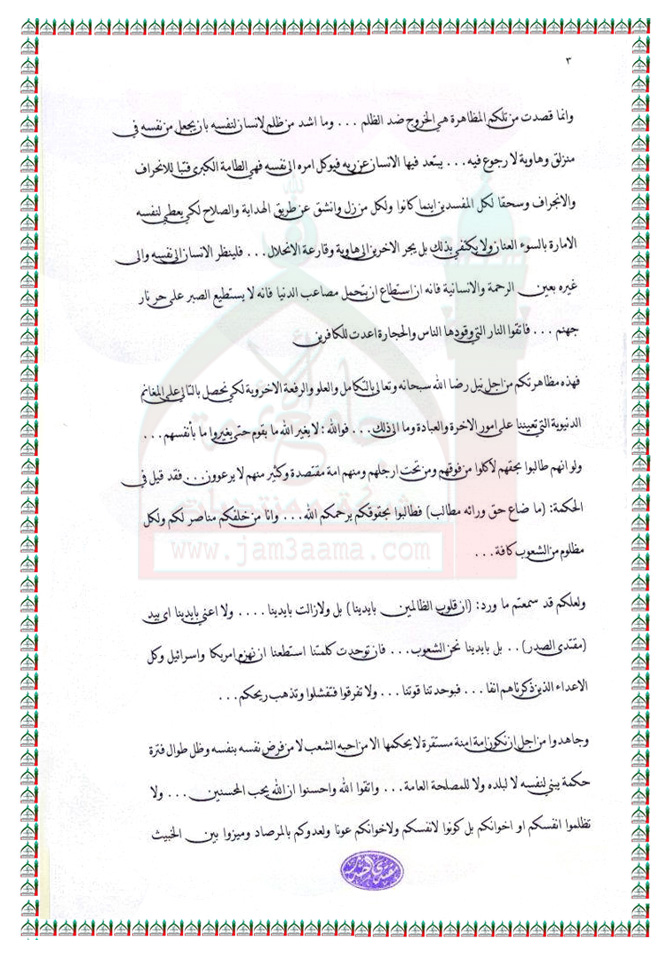 ٣
وانما قصدت من تلكم المظاهرة هي الخروج ضد الظلم ... وما اشد من ظلم لانسان لنفسه بان يجعل من نفسه في
منزلق وهاوية لا رجوع فيه ... يبتعد فيها الانسان عن ربه فيوكل امره الى نفسه فهي الطامة الكبرى فتبا للانحراف
والانجراف وسحقا لكل المفسدين اينما كانوا ولكل من زل وانشق عن طريق الهداية والصلاح لكي يعطي لنفسه
الامارة بالسوء العنان ولا يكتفي بذلك بل يجر الاخرين الى هاوية وقارعة الانحلال ... فلينظر الانسان الى نفسه والى
غيره بعين الرحمة والانسانية فانه ان استطاع ان يتحمل مصاعب الدنيا فانه لا يستطيع الصبر على حر نار
جهنم ... فاتقوا النار التي وقودها الناس والحجارة اعدت للكافرين
فهذه مظاهرتكم من اجل نيل رضا الله سبحانه وتعالى بالتكامل والعلو والرفعة الاخروية لكي نحصل بالتالي على المغانم
الدنيوية التي تعيننا على امور الاخرة والعبادة وما الى ذلك ... فوالله : لا يغير الله ما بقوم حتى يغيروا ما بأنفسهم ...
ولو انهم طالبوا بحقهم لأكلوا من فوقهم ومن تحت ارجلهم ومنهم امة مقتصدة وكثير منهم لا يرعوون... فقد قيل في
الحكمة: (ما ضاع حق ورائه مطالب) فطالبوا بحقوقكم يرحمكم الله ... وانا من خلفكم مناصر لكم ولكل
مظلوم من الشعوب كافة ...
www.jam3aama.com
ولعلكم قد سمعتم ما ورد: (ان قلوب الظالمين بايدينا) بل ولازالت بايدينا .... ولا اعني بايدينا اي بيد
(مقتدى الصدر) .. بل بايدينا نحن الشعوب ... فان توحدت كلمتنا استطعنا ان نهزم امريكا واسرائيل وكل
الاعداء الذين ذكرناهم انفا ... فبوحدتنا قوتنا ... ولا تفرقوا فتفشلوا وتذهب ريحكم ...
وجاهدوا من اجل ان نكون امة امنة مستقرة لا يحكمها الا من احبه الشعب لا من فرض نفسه بنفسه وظل طوال فترة
حكمة يبني لنفسه لا لبلده ولا للمصلحة العامة ... واتقوا الله واحسنوا ان الله يحب المحسنين ... ولا
تظلموا انفسكم او اخوانكم بل كونوا لانفسكم ولاخوانكم عونا ولعدوكم بالمرصاد وميزوا بين الخبيث